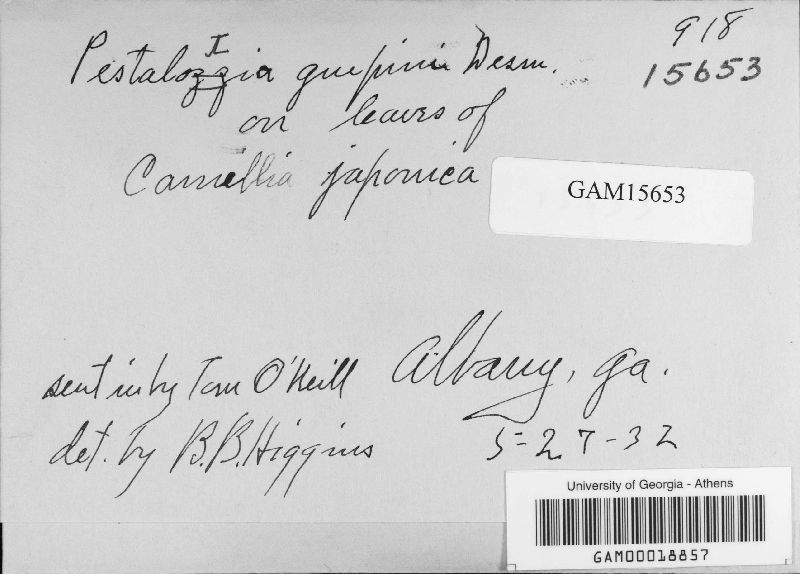 918
15653
Pestalozzia guepini Desm.
on leaves of
Camellia japonica
GAM15653
sent in by Tom O'Neill Albany, Ga.
det. by B.B. Higgins 5-27-32
University of Georgia - Athens
GAM00018857